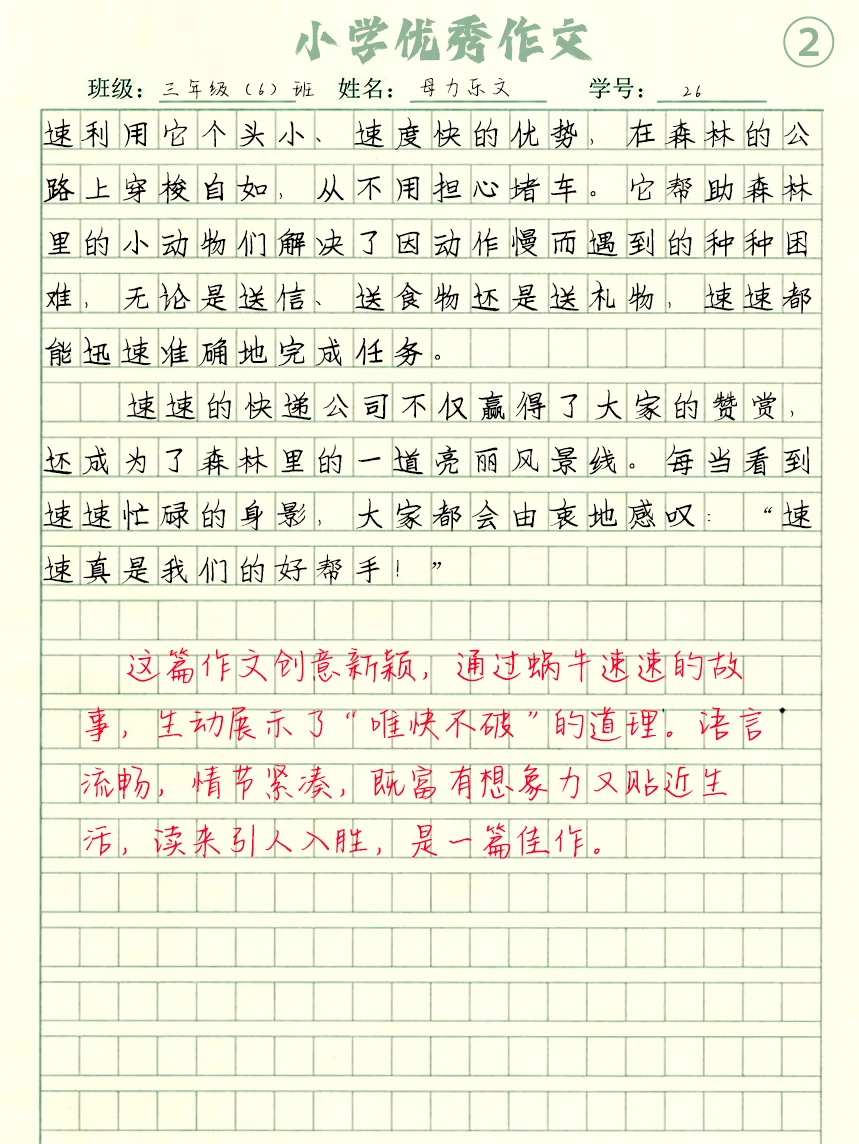 小学优秀作文
②
班级：三年级（6）班 姓名：母力乐文 学号：26
速利用它个头小、速度快的优势，在森林的公
路上穿梭自如，从不用担心堵车。它帮助森林
里的小动物们解决了因动作慢而遇到的种种困
难，无论是送信、送食物还是送礼物，速速都
能迅速准确地完成任务。
速速的快递公司不仅赢得了大家的赞赏，
还成为了森林里的一道亮丽风景线。每当看到
速速忙碌的身影，大家都会由衷地感叹：“速
速真是我们的好帮手！”
这篇作文创意新颖，通过蜗牛速速的故
事，生动展示了“唯快不破”的道理。语言
流畅，情节紧凑，既富有想象力又贴近生
活，读来引人入胜，是一篇佳作。